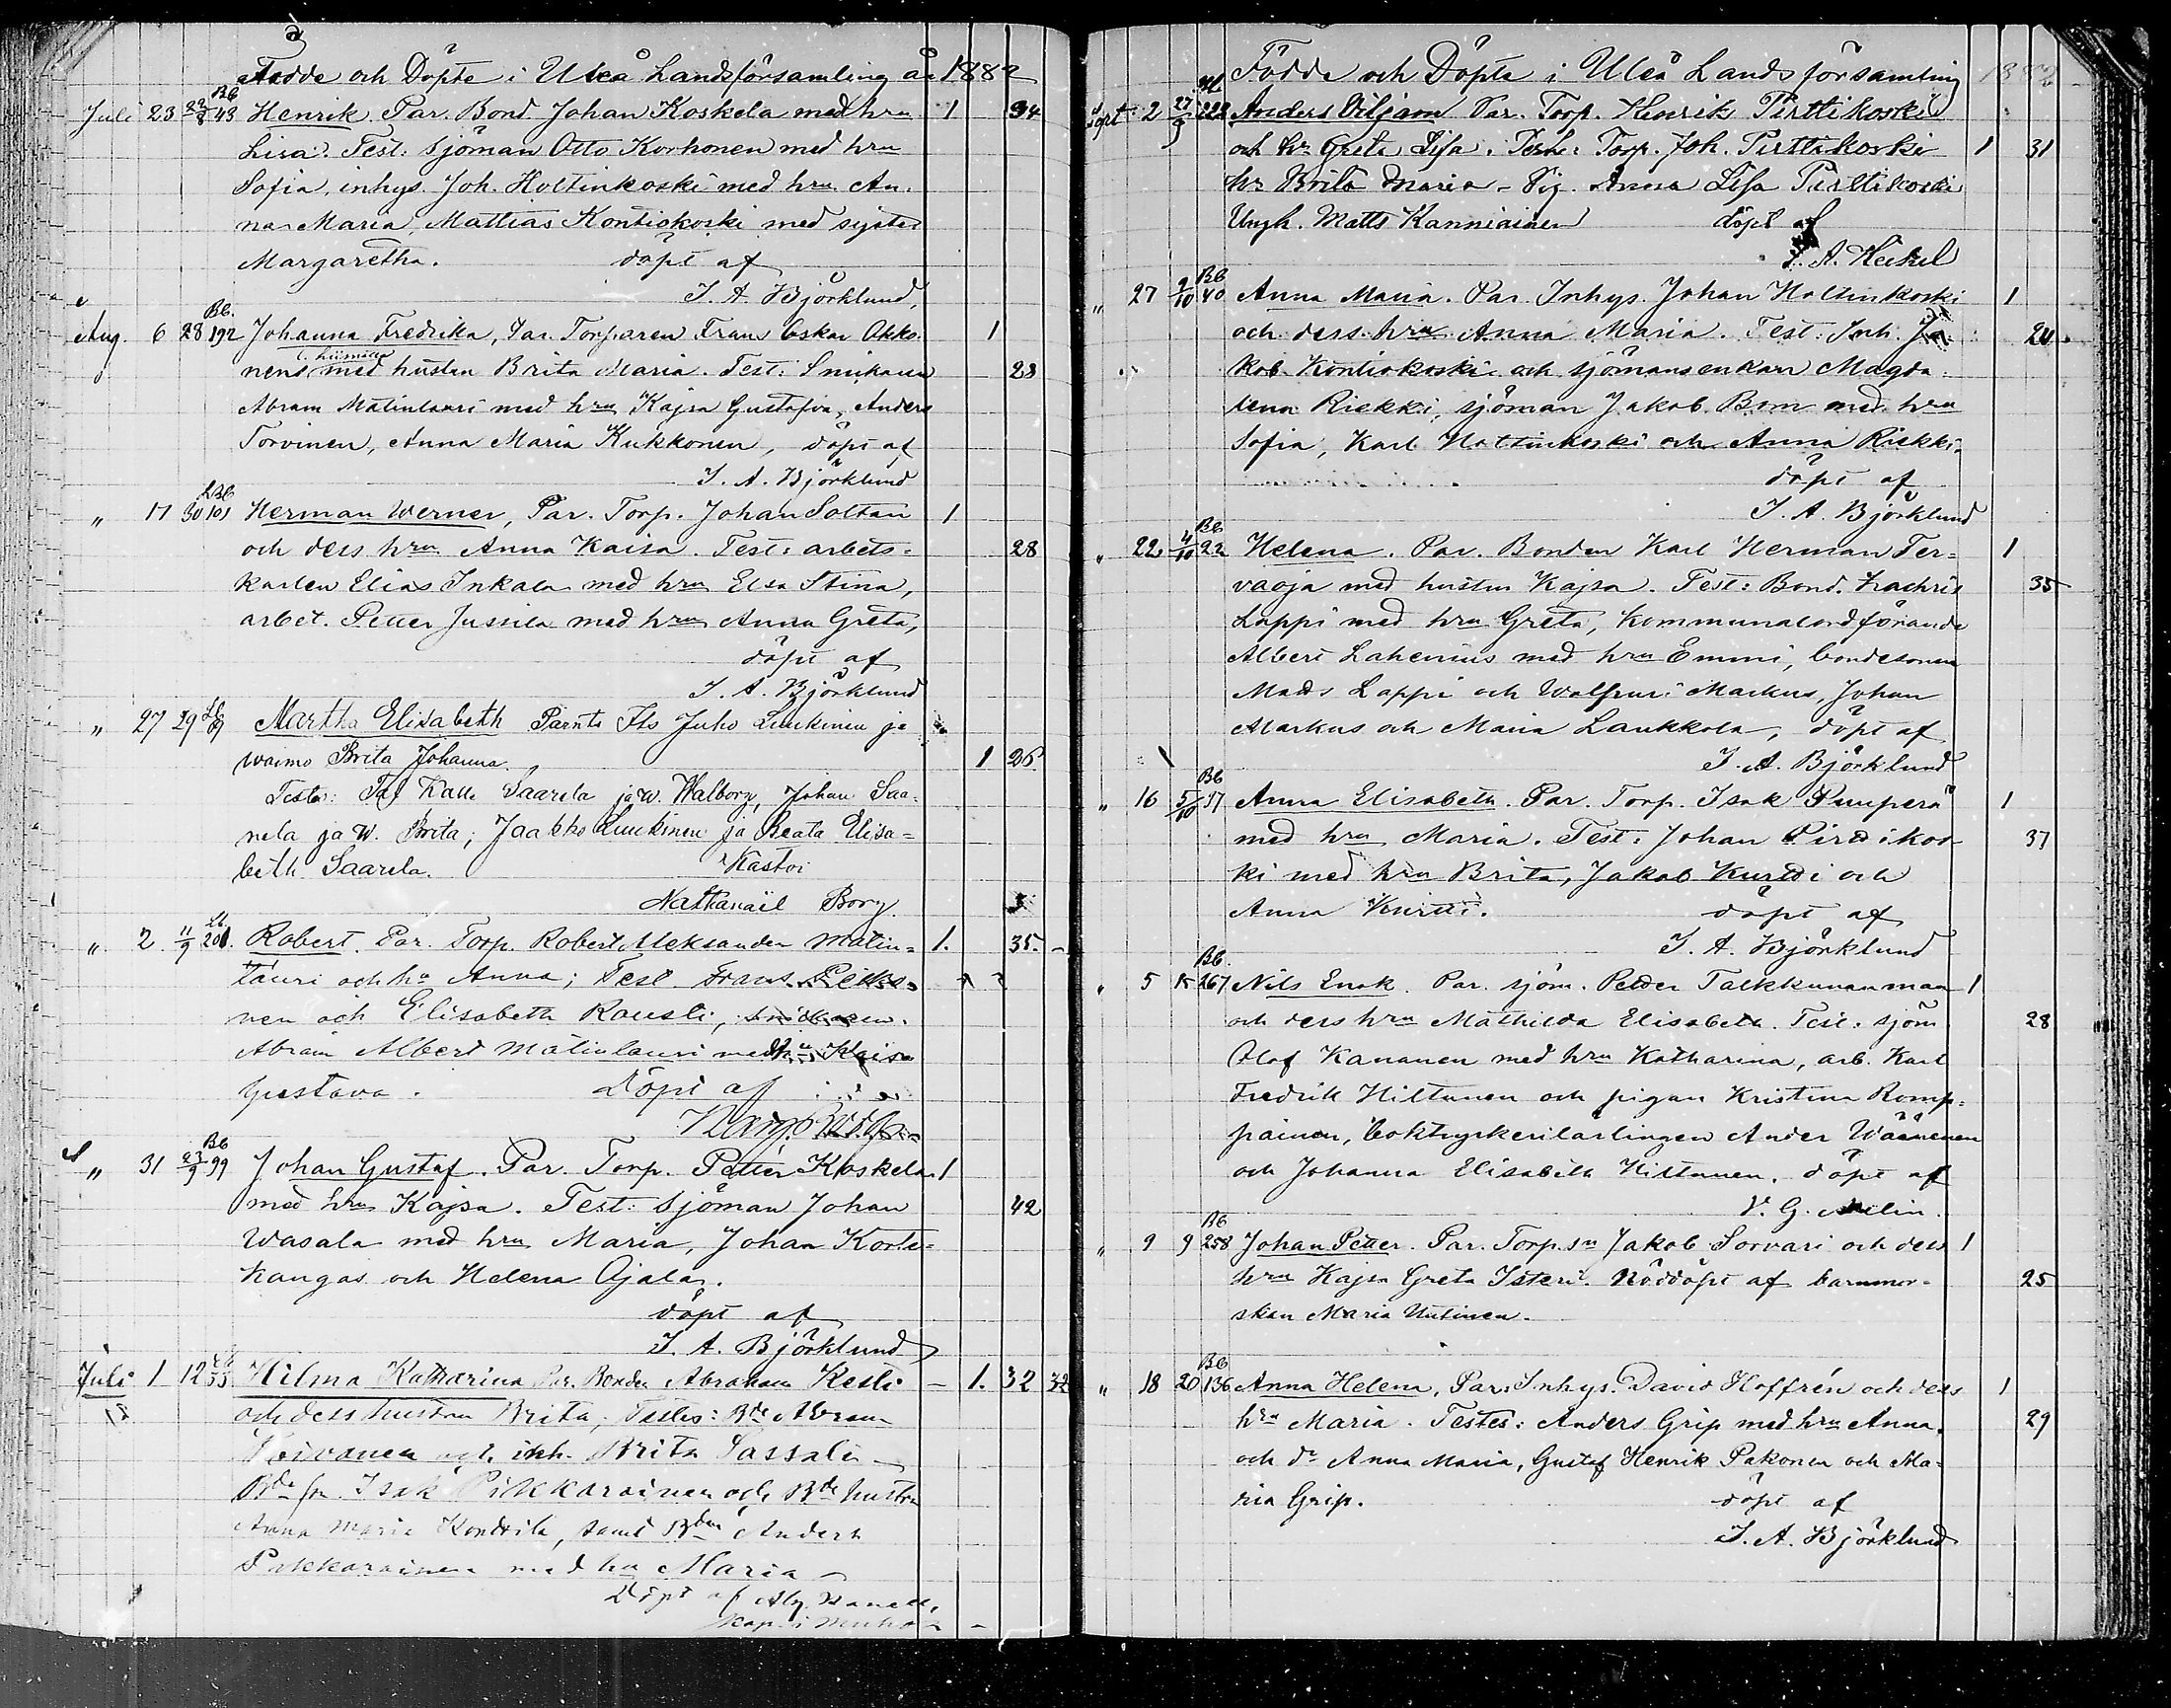 Födde och Döpte i Uleå Landsförsamling år 1882
Bb
Juli 23 22/8 43 Henrik. Par. Bond Johan Koskela med hru 1 34
Lisa. Test: Sjöman Otto Korhonen med hru
Sofia, inhys. Joh. Holtinkoski med hru An-
na Maria, Mattias Kontiokoski med syster
Margaretha. döpt af
J. A. Björklund,
Bb.
Aug. 6 28 192 Johanna Fredrika, Par. Torparen Frans Oskar Okko- 1
nens med hustru Brita Maria. Test: Smikaren 23
Abram Matinlauri med hru Kajsa Gustafva, Anders
Torvinen, Anna Maria Kukkonen, döpt af
J. A. Björklund
" 17 30 101 Herman Werner, Par. Torp. Johan Soltan 1
och dess hru Anna Kaisa. Test: arbets- 28
karlen Elias Inkala med hru Elsa Stina,
arbet. Petter Jussila med hru Anna Greta,
döpt af
J. A. Björklund
" 27 29 Martha Elisabeth Parnts Its Juho Luukinen ja
waimo Brita Johanna. 1 26
Testes: Tal Kalle Saarela ja w. Walborg, Johan Saa-
rela ja w. Brita; Jaakko Luukinen ja Beata Elisa-
beth Saarela. Kastoi
Nathanaël Borg.
" 2 11/9 201. Robert. Par. Torp. Robert Aleksander Matin- 1. 35.
lauri och hu Anna; Test Frans
nen och Elisabeth Rausti,
Abram Albert Matinlauri med hu Kaisa
Gustava. Döpt af
Bb
" 31 23/9 99 Johan Gustaf. Par. Torp. Petter Koskela 1
med hru Kajsa. Test: Sjöman Johan 42
Wasala med hru Maria, Johan Korte-
kangas och Helena Ojala.
döpt af
J. A. Björklund
Juli 1 12 Hilma Katharina Par. Bonden Abraham Kesti 1. 32 32
och dess hustru Brita; Testes:
inh. Brita Sassali
Isak Pikkarainen och hustru
Anna Maria Kondrila, samt Anders
Pikkarainen med hu Maria
Döpt af
Födde och Döpte i Uleå Landsförsamling 1882
Sept. 2 27/9 222 Anders Viljam Par. Torp. Henrik Pirttikoski
och hr Greta Lisa. Test: Torp. Joh. Pirttikoski 1 31
hr Brita Maria – Pig. Anna Lisa Pirttikoski
Ungk. Matts Kanniainen döpt af
J. A. Heikel
Bb
" 27 2/10 40 Anna Maria. Par. Inhys. Johan Holtinkoski 1
och dess hru Anna Maria. Test: Inh. Ja- 24
kob Kontiokoski och sjömansenkan Magda-
lena Riekki, sjöman Jakob Bom med hru
Sofia, Karl Holtinkoski och Anna Riekki.
döpt af
J. A. Björklund
Bb
" 22 4/10 22 Helena. Par. Bonden Karl Herman Ter- 1
vaoja med hustru Kajsa. Test: Bond. Zachris 35
Lappi med hru Greta, Kommunalordförande
Albert Lahenius med hru Emmi, bondesonen
Mads Lappi och Walfrid Markus, Johan
Markus och Maria Laukkola, döpt af
J. A. Björklund
Bb
" 16 5/10 37 Anna Elisabeth. Par. Torp. Isak Pumperö 1
med hru Maria. Test: Johan Pirttikos- 37
ki med hru Brita, Jakob Kurtti och
Anna Kurtti. döpt af
J. A. Björklund
Bb.
" 5 15 267 Nils Enok. Par. sjöm. Petter Talkkunanmaa 1
och dess hru Mathilda Elisabeth. Test: sjöm 28
Olof Kananen med hru Katharina, arb. Karl
Fredrik Hiltunen och pigan Kristina Romp-
painen, boktryckerilärlingen Ander Wäänenen
och Johanna Elisabeth Hiltunen. döpt af
V. G. Melin.
Bb
" 9 9 258 Johan Petter. Par. Torp.sn Jakob Sorvari och dess 1
hru Kajsa Greta Isteri. Nöddöpt af barnmor- 25
skan Maria Uutinen.
Bb
" 18 20 136 Anna Helena, Par: Inhys. David Hoffrén och dess 1
hru Maria. Testes: Anders Grip med hru Anna, 29
och dr Anna Maria, Gustaf Henrik Pakonen och Ma-
ria Grip. döpt af
J. A. Björklund